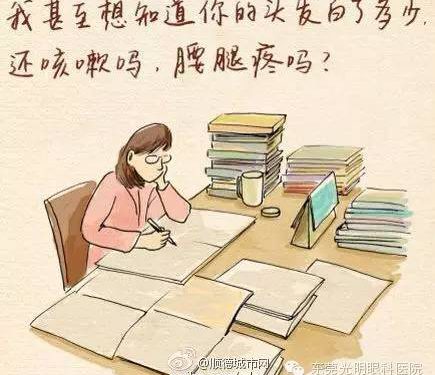 我甚至想知道你的头发白了多少,
还咳嗽吗,腰腿疼吗?
顺德城市网
东莞光明眼科医院